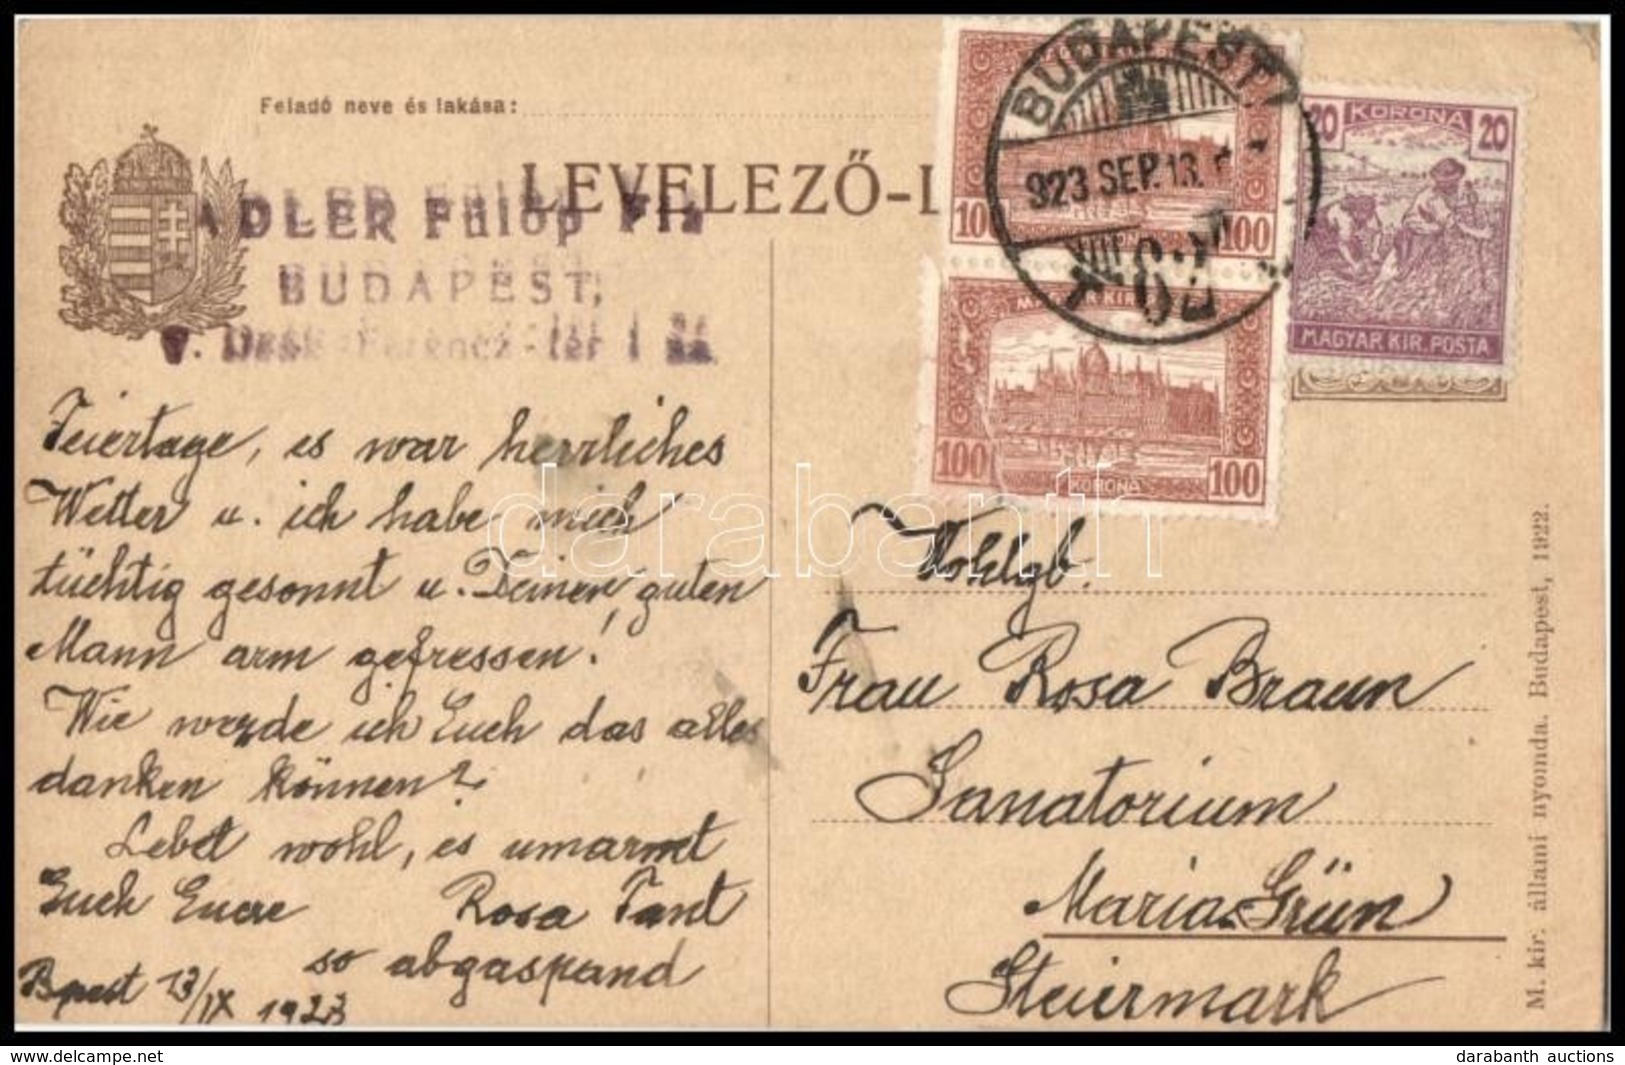 Feladó neve és lakása:
LEVELEZŐ-L
ADLER Fülöp Fia
BUDAPEST,
V. Deák Ferencz-tér
Feiertage, es war herrliches
Wetter u. ich habe mich
tüchtig gesonnt u. Deinen guten
Mann arm gefressen!
Wie werde ich Euch das alles
danken können?
Lebet wohl, es umarmt
Euch Euere Rosa Tant
so abgaspand
Bpest 13/IX 1923
BUDAPEST
923 SEP. 13.
VIII
62
100
100
KORONA
MAGYAR KIR.
100
100
KORONA
20 KORONA 20
MAGYAR KIR. POSTA
Wohlgb.
Frau Rosa Braun
Sanatorium
Maria-Grün
Steiermark
M. kir. állami nyomda. Budapest, 1922.
darabanth
darabanth auctions
www.delcampe.net